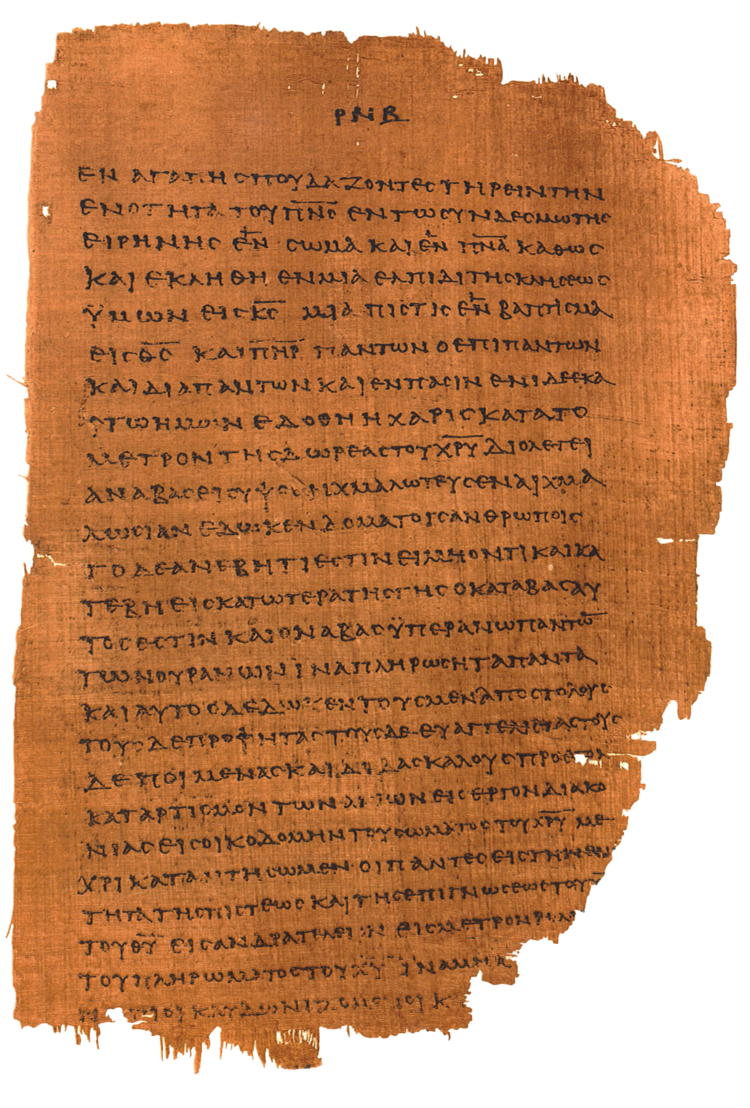 ΡΝΒ
ΕΝ ΑΓΑΠΗ ΣΠΟΥΔΑΖΟΝΤΕΣ ΤΗΡΕΙΝ ΤΗΝ
ΕΝΟΤΗΤΑ ΤΟΥ Π̅Ν̅Σ̅ ΕΝ ΤΩ ΣΥΝΔΕΣΜΩ ΤΗΣ
ΕΙΡΗΝΗΣ ΕΝ ΣΩΜΑ ΚΑΙ ΕΝ Π̅Ν̅Α̅ ΚΑΘΩΣ
ΚΑΙ ΕΚΛΗΘΗ ΕΝ ΜΙΑ ΕΛΠΙΔΙ ΤΗΣ ΚΛΗΣΕΩΣ
ΫΜΩΝ ΕΙΣ Κ̅Σ̅ ΜΙΑ ΠΙΣΤΙΣ ΕΝ ΒΑΠΤΙΣΜΑ
ΕΙΣ Θ̅Σ̅ ΚΑΙ Π̅Η̅Ρ̅ ΠΑΝΤΩΝ Ο ΕΠΙ ΠΑΝΤΩΝ
ΚΑΙ ΔΙΑ ΠΑΝΤΩΝ ΚΑΙ ΕΝ ΠΑΣΙΝ ΕΝΙ ΔΕ ΕΚΑ
ΣΤΩ ΗΜΩΝ ΕΔΟΘΗ Η ΧΑΡΙΣ ΚΑΤΑ ΤΟ
ΜΕΤΡΟΝ ΤΗΣ ΔΩΡΕΑΣ ΤΟΥ Χ̅Ρ̅Υ̅ ΔΙΟ ΛΕΓΕΙ
ΑΝΑΒΑΣ ΕΙΣ ΥΨΟΣ ΗΧΜΑΛΩΤΕΥΣΕΝ ΑΙΧΜΑ
ΛΩΣΙΑΝ ΕΔΩΚΕΝ ΔΟΜΑΤΟΙΣ ΑΝΘΡΩΠΟΙΣ
ΤΟ ΔΕ ΑΝΕΒΗ ΤΙ ΕΣΤΙΝ ΕΙ ΜΗ ΟΝΤΙ ΚΑΙ ΚΑ
ΤΕΒΗ ΕΙΣ ΚΑΤΩΤΕΡΑ ΤΗΣ ΓΗΣ Ο ΚΑΤΑΒΑΣ ΑΥ
ΤΟΣ ΕΣΤΙΝ ΚΑΙ Ο ΝΑΒΑΣ ΫΠΕΡΑΝΩ ΠΑΝΤΩ̅
ΤΩΝ ΟΥΡΑΝΩΙΝ ΙΝΑ ΠΛΗΡΩΣΗ ΤΑ ΠΑΝΤΑ
ΚΑΙ ΑΥΤΟΣ ΔΕΔΩΚΕΝ ΤΟΥΣ ΜΕΝ ΑΠΟΣΤΟΛΟΥΣ
ΤΟΥΣ ΔΕ ΠΡΟΦΗΤΑΣ ΤΟΥΣ ΔΕ ΕΥΑΓΓΕΛΙΣΤΑΣ ΤΟΥΣ
ΔΕ ΠΟΙΜΕΝΑΣ ΚΑΙ ΔΙΔΑΣΚΑΛΟΥΣ ΠΡΟΣ ΤΟΝ
ΚΑΤΑΡΤΙΣΜΟΝ ΤΩΝ ΑΓΙΩΝ ΕΙΣ ΕΡΓΟΝ ΔΙΑΚΟ
ΝΙΑΣ ΕΙΣ ΟΙΚΟΔΟΜΗΝ ΤΟΥ ΣΩΜΑΤΟΣ ΤΟΥ Χ̅Ρ̅Υ̅ ΜΕ
ΧΡΙ ΚΑΤΑΝΤΗΣΩΜΕΝ ΟΙ ΠΑΝΤΕΣ ΕΙΣ ΤΗΝ ΕΝΟ
ΤΗΤΑ ΤΗΣ ΠΙΣΤΕΩΣ ΚΑΙ ΤΗΣ ΕΠΙΓΝΩΣΕΩΣ ΤΟΥ
ΤΟΥ Θ̅Υ̅ ΕΙΣ ΑΝΔΡΑ ΤΕΛΕΙΟΝ ΕΙΣ ΜΕΤΡΟΝ
ΤΟΥ ΠΛΗΡΩΜΑΤΟΣ ΤΟΥ Χ̅Υ̅ ΙΝΑ ΜΗ
ΚΛΥΔΩΝΙΖΟΜΕΝΟΙ Κ